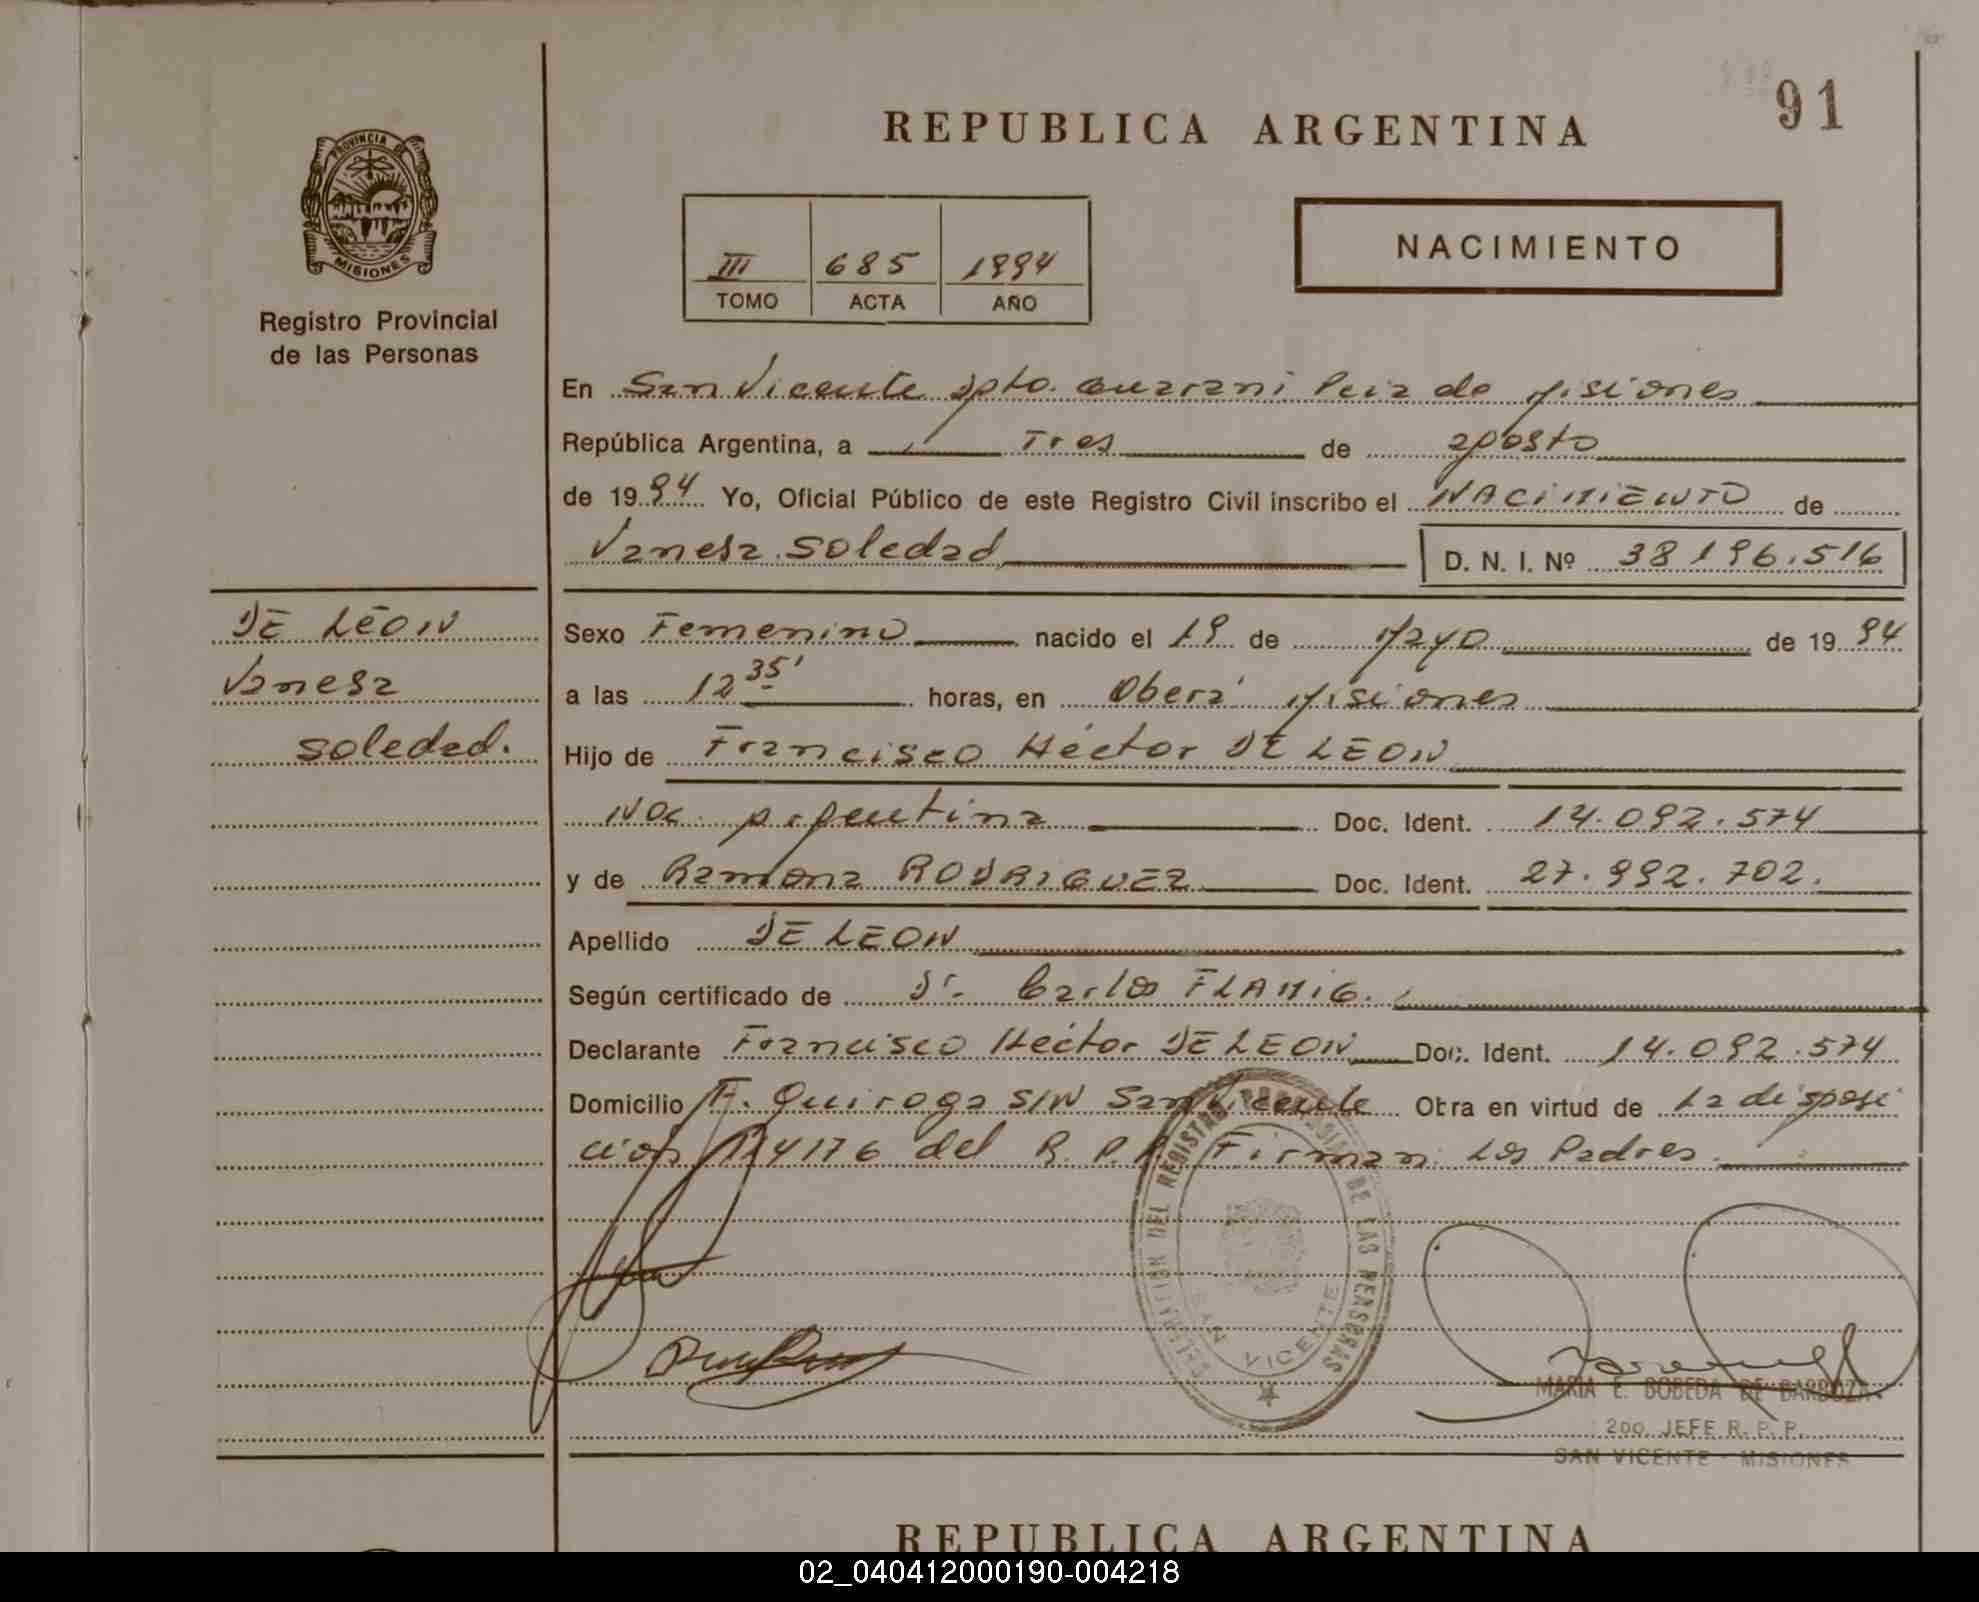 91
REPUBLICA ARGENTINA
PROVINCIA DE
MISIONES
Registro Provincial
de las Personas
III 685 1994
TOMO ACTA AÑO
NACIMIENTO
En San Vicente Dpto. Guarani Pcia de Misiones
República Argentina, a Tres de agosto
de 1994 Yo, Oficial Público de este Registro Civil inscribo el NACIMIENTO de
Vanesa Soledad D. N. I. Nº 38196.516
DE LEON
Vanesa
Soledad.
Sexo Femenino nacido el 19 de Mayo de 1994
a las 12 35' horas, en Oberá Misiones
Hijo de Francisco Héctor DE LEON
Nac. Argentina Doc. Ident. 14.092.574
y de Ramona RODRIGUEZ Doc. Ident. 27.992.702.
Apellido DE LEON
Según certificado de Dr. Carlos FLAMIG.
Declarante Francisco Héctor DE LEON Doc. Ident. 14.092.574
Domicilio F. Quiroga S/N San Vicente Otra en virtud de la disposi
ción 124176 del R. P. P. Firman los Padres
DELEGACION DEL REGISTRO PROVINCIAL DE LAS PERSONAS
SAN VICENTE
MARIA E. BOBEDA DE BARBOZA
2DO. JEFE R. P. P.
SAN VICENTE - MISIONES
REPUBLICA ARGENTINA
02_040412000190-004218